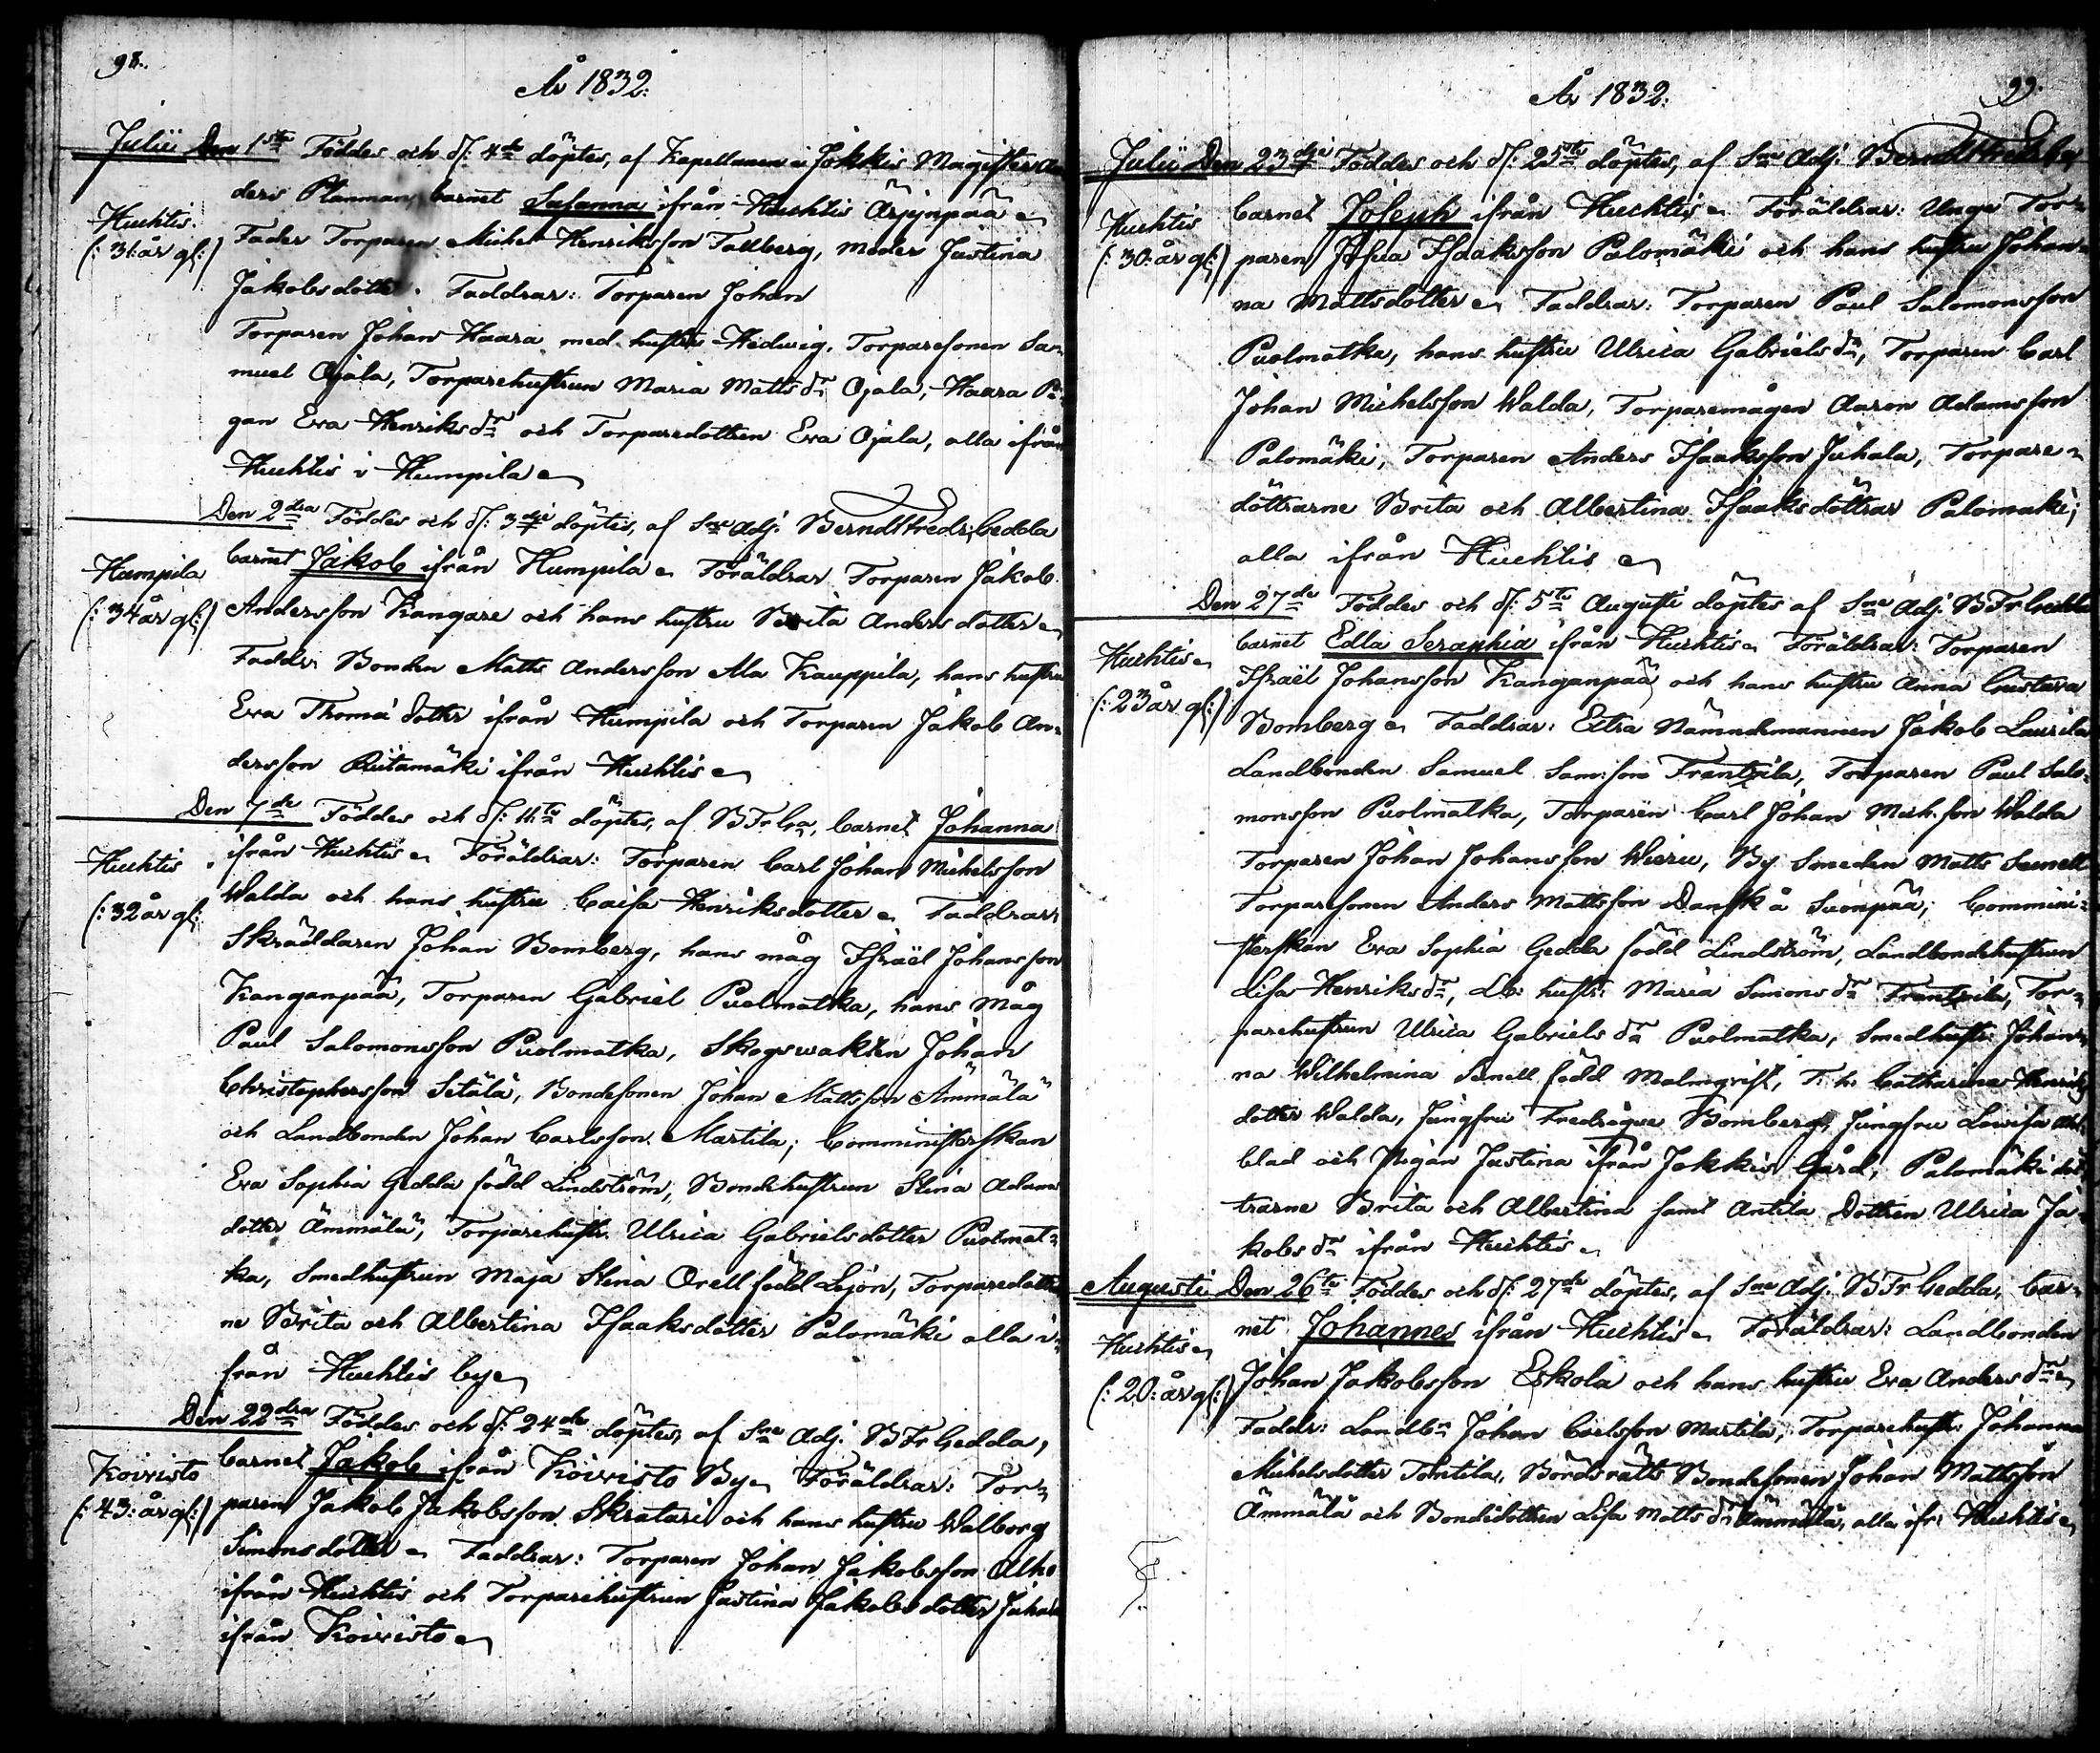 98.
År 1832:
Julii Den 1sta Föddes och d: 4de döptes, af Kapellanen i Jokkis Magister An
ders Planman, barnet Susanna ifrån Huchtis Äijänpää
Huchtis.
(: 31: år gl:)
Fader Torparen Michel Henriksson Tallberg, moder Justina
Jakobsdotter. Faddrar: Torparen Johan
Torparen Johan Haara med hustru Hedwig, Torparesonen Sa-
muel Ojala, Torparehustrun Maria Matts dr Ojala, Haara Pi-
gan Eva Henriks dr och Torparedottren Eva Ojala, alla ifrån
Huchtis i Humpila
Den 2dra Föddes och d: 3dje döptes, af Sne Adj. Berndt Fredr: Gedda
Humpila
(: 34 år gl:)
barnet Jakob ifrån Humpila Föräldrar Torparen Jakob
Andersson Kangare och hans hustru Brita Andersdotter
Faddr: Bonden Matts Andersson Ala Kauppila, hans hustru
Eva Thomæ dotter ifrån Humpila och Torparen Jakob An-
dersson Riitamäki ifrån Huchtis
Den 7de Föddes och d: 11te döptes, af B Fr Ga, barnet Johanna
Huchtis
(: 32 år gl:
ifrån Huchtis Föräldrar: Torparen Carl Johan Michelsson
Walda och hans hustru Caisa Henriksdotter Faddrar:
Skräddaren Johan Bomberg, hans måg Israël Johansson
Kanganpää, Torparen Gabriel Puolmatka, hans Måg
Paul Salomonsson Puolmatka, Skogswakten Johan
Christophersson Setälä, Bondesonen Johan Mattsson Ämmälä
och Landbonden Johan Carlsson Martila; Comministerskan
Eva Sophia Gedda född Lindström, Bondehustrun Stina Adams
dotter Ämmälä, Torparehustr. Ulrica Gabrielsdotter Puolmat-
ka, Smedhustrun Maja Stina Orell född Lejon, Torparedöttrar
ne Brita och Albertina Isaaksdötter Palomäki alla i-
från Huchtis by
Den 22dra Föddes och d: 24de döptes, af Sne Adj. B Fr Gedda,
Koivisto
(: 43: år gl:)
barnet Jakob ifrån Koivisto By Föräldrar: Tor-
paren Jakob Jakobsson Skratari och hans hustru Walborg
Simonsdotter Faddrar: Torparen Johan Jakobsson Alho
ifrån Huchtis och Torparehustrun Justina Jakobsdotter Juhala
ifrån Koivisto
99.
År 1832:
Julii Den 23dje Föddes och d: 25te döptes, af Sne Adj. Berndt Fredr: Ga
Huchtis
(: 30: år gl:)
barnet Joseph ifrån Huchtis Föräldrar: Unga Tor-
paren Josua Isaaksson Palomäki och hans hustru Johan-
na Mattsdotter Faddrar: Torparen Paul Salomonsson
Puolmatka, hans hustru Ulrica Gabriels dr, Torparen Carl
Johan Michelsson Walda, Torparemågen Aaron Adamsson
Palomäki, Torparen Anders Isaaksson Juhala, Torpare-
döttrarne Brita och Albertina Isaaksdöttrar Palomaki;
alla ifrån Huchtis
Den 27de Föddes och d: 5te Augusti döptes af Sne Adj. B Fr Gedda
Huchtis
(: 23 år gl:)
barnet Edla Seraphia ifrån Huchtis Föräldrar: Torparen
Israël Johansson Kanganpää och hans hustru Anna Gustava
Bomberg Faddrar: Extra Nämndemannen Jakob Laurila
Landbonden Samuel Sam:son Frantzila, Torparen Paul Salo-
monsson Puolmatka, Torparen Carl Johan Mich:son Walda
Torparen Johan Johansson Wieru, By Smeden Matts Senell
Torparesonen Anders Mattsson Dansk å Suonpää; Commini-
sterskan Eva Sophia Gedda född Lindström, Landbondehustrun
Lisa Henriks dr, Lb: hustr: Maria Simons dr Frantzila, Tor-
parehustrun Ulrica Gabriels dr Puolmatka, Smedhustr: Johan-
na Wilhelmina Senell född Malmqvist, T: h: Catharina Henriks
dotter Walda, Jungfru Fredrique Bomberg, Jungfru Lovisa
blad och Pigan Justina ifrån Jokkis Gård, Palomäki döt
trarne Brita och Albertina samt Antila Dottren Ulrica Ja-
kobs dr ifrån Huchtis
Augusti Den 26te Föddes och d: 27de döptes, af Sne Adj. B Fr Gedda, bar-
Huchtis
(: 20: år gl:)
net Johannes ifrån Huchtis Föräldrar: Landbonden
Johan Jakobsson Eskola och hans hustru Eva Anders dr
Faddr: Landbn Johan Carlsson Martila, Torparehustr: Johanna
Michelsdotter Tontila, Bördsrätts Bondesonen Johan Mattsson
Ämmälä och Bondedottren Lisa Matts dr Ämmälä, alla ifr: Huchtis